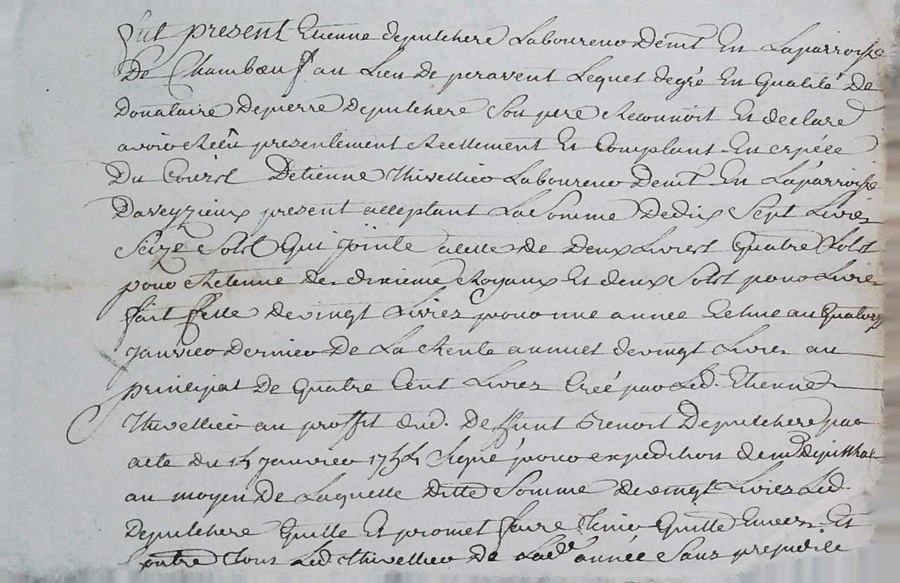 fut present Etienne depulchere Laboureur Demt En Laparroisse
De Chambœuf au Lieu de peravent Lequel degré En qualité De
Donataire Depierre Depulchere Son pere Reconnoit Et declare
avoir Reçu presentement Reellement Et Comptant En espece
Du Cours Detienne thivellier Laboureur Demt En Laparroisse
Daveyzieux present acceptant La Somme Dedix Sept Livres
Seize Solst Qui jointe acelle de Deux Livrest Quatre Solst
pour Retenue De dixieme Royaux Et deux Solst pour Livre
fait Celle Devingt Livres pour une année Echue au Quatorze
janvier Dernier De La Rente annuel devingt Livres au
principal De Quatre Cent Livres Créé par Led. Etienne
thivellier au proffit dud. Deffunt Benoit Depulchere par
acte du 14 janvier 1744 Signé pour expedition
au moyen De Laquelle Ditte Somme Devingt Livres Led.
Depulchere Quitte Et promet faire tenir Quitte Envers Et
Contre tous Led. thivellier De Lade. année Sans prejudice